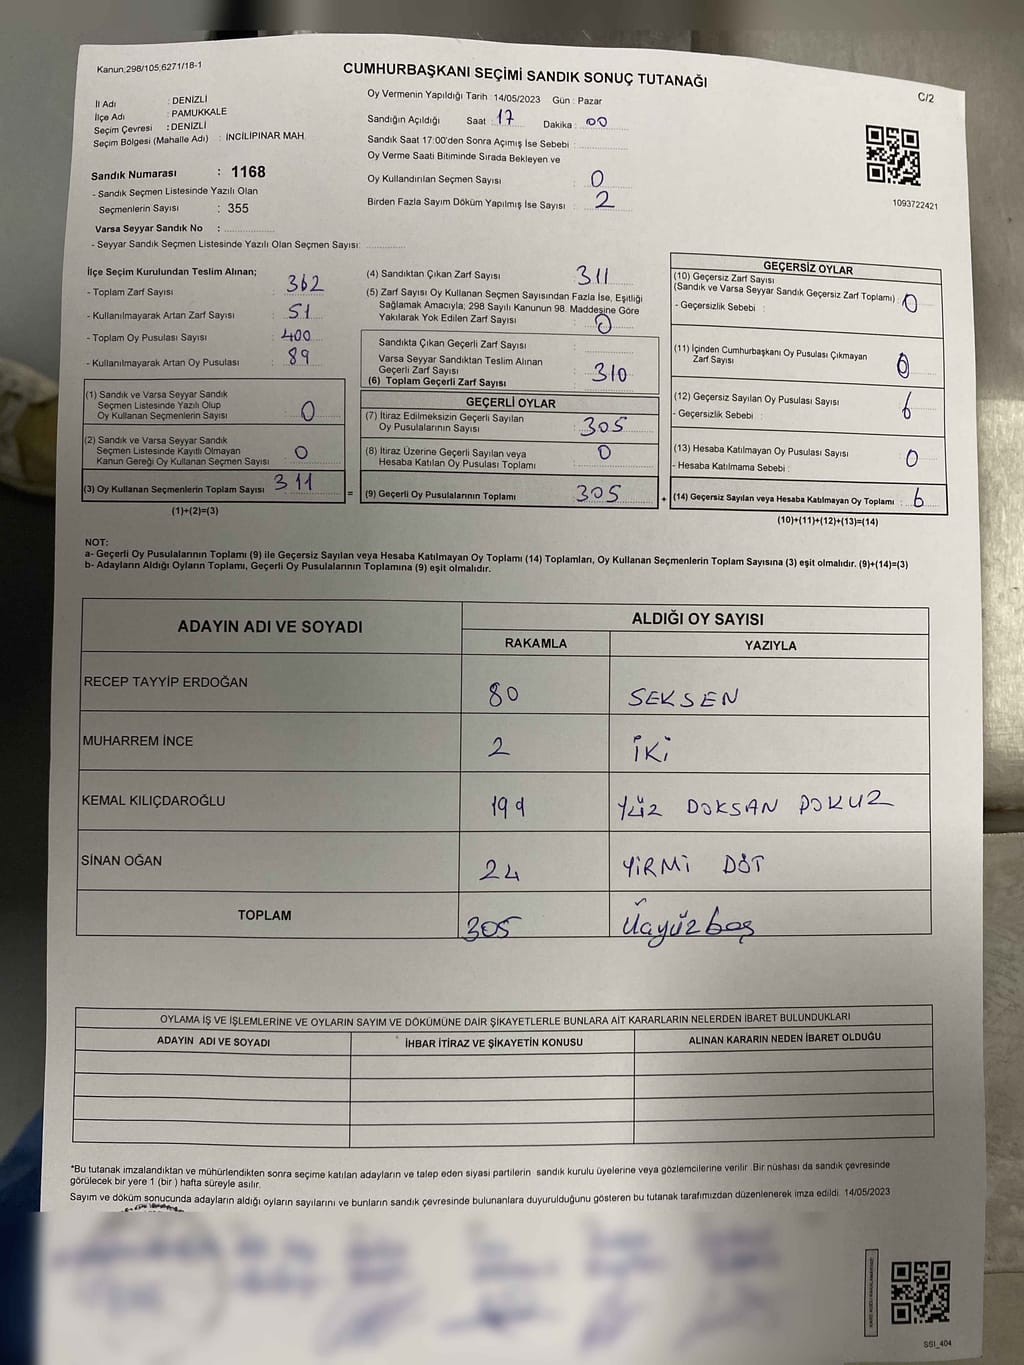 Kanun,298/105,6271/18-1
CUMHURBAŞKANI SEÇİMİ SANDIK SONUÇ TUTANAĞI
C/2
İl Adı : DENİZLİ
İlçe Adı : PAMUKKALE
Seçim Çevresi : DENİZLİ
Seçim Bölgesi (Mahalle Adı) : İNCİLİPINAR MAH.
Sandık Numarası : 1168
- Sandık Seçmen Listesinde Yazılı Olan
Seçmenlerin Sayısı : 355
Varsa Seyyar Sandık No :
- Seyyar Sandık Seçmen Listesinde Yazılı Olan Seçmen Sayısı:
Oy Vermenin Yapıldığı Tarih : 14/05/2023 Gün : Pazar
Sandığın Açıldığı Saat : 17 Dakika : 00
Sandık Saat 17:00'den Sonra Açımış İse Sebebi :
Oy Verme Saati Bitiminde Sırada Bekleyen ve
Oy Kullandırılan Seçmen Sayısı : 0
Birden Fazla Sayım Döküm Yapılmış İse Sayısı : 2
1093722421
İlçe Seçim Kurulundan Teslim Alınan;
- Toplam Zarf Sayısı : 362
- Kullanılmayarak Artan Zarf Sayısı : 51
- Toplam Oy Pusulası Sayısı : 400
- Kullanılmayarak Artan Oy Pusulası : 89
(1) Sandık ve Varsa Seyyar Sandık
Seçmen Listesinde Yazılı Olup
Oy Kullanan Seçmenlerin Sayısı : 0
(2) Sandık ve Varsa Seyyar Sandık
Seçmen Listesinde Kayıtlı Olmayan
Kanun Gereği Oy Kullanan Seçmen Sayısı : 0
(3) Oy Kullanan Seçmenlerin Toplam Sayısı : 311
(1)+(2)=(3)
=
(4) Sandıktan Çıkan Zarf Sayısı : 311
(5) Zarf Sayısı Oy Kullanan Seçmen Sayısından Fazla İse, Eşitliği
Sağlamak Amacıyla, 298 Sayılı Kanunun 98. Maddesine Göre
Yakılarak Yok Edilen Zarf Sayısı : 0
Sandıkta Çıkan Geçerli Zarf Sayısı :
Varsa Seyyar Sandıktan Teslim Alınan
Geçerli Zarf Sayısı :
(6) Toplam Geçerli Zarf Sayısı : 310
GEÇERLİ OYLAR
(7) İtiraz Edilmeksizin Geçerli Sayılan
Oy Pusulalarının Sayısı : 305
(8) İtiraz Üzerine Geçerli Sayılan veya
Hesaba Katılan Oy Pusulası Toplamı : 0
(9) Geçerli Oy Pusulalarının Toplamı : 305
+
GEÇERSİZ OYLAR
(10) Geçersiz Zarf Sayısı
(Sandık ve Varsa Seyyar Sandık Geçersiz Zarf Toplamı) : 0
- Geçersizlik Sebebi :
(11) İçinden Cumhurbaşkanı Oy Pusulası Çıkmayan
Zarf Sayısı : 0
(12) Geçersiz Sayılan Oy Pusulası Sayısı : 6
- Geçersizlik Sebebi :
(13) Hesaba Katılmayan Oy Pusulası Sayısı : 0
- Hesaba Katılmama Sebebi :
(14) Geçersiz Sayılan veya Hesaba Katılmayan Oy Toplamı : 6
(10)+(11)+(12)+(13)=(14)
NOT:
a- Geçerli Oy Pusulalarının Toplamı (9) ile Geçersiz Sayılan veya Hesaba Katılmayan Oy Toplamı (14) Toplamları, Oy Kullanan Seçmenlerin Toplam Sayısına (3) eşit olmalıdır. (9)+(14)=(3)
b- Adayların Aldığı Oyların Toplamı, Geçerli Oy Pusulalarının Toplamına (9) eşit olmalıdır.
ADAYIN ADI VE SOYADI
ALDIĞI OY SAYISI
RAKAMLA YAZIYLA
RECEP TAYYİP ERDOĞAN 80 SEKSEN
MUHARREM İNCE 2 İKİ
KEMAL KILIÇDAROĞLU 199 YÜZ DOKSAN DOKUZ
SİNAN OĞAN 24 YİRMİ DÖT
TOPLAM 305 Üçyüzbeş
OYLAMA İŞ VE İŞLEMLERİNE VE OYLARIN SAYIM VE DÖKÜMÜNE DAİR ŞİKAYETLERLE BUNLARA AİT KARARLARIN NELERDEN İBARET BULUNDUKLARI
ADAYIN ADI VE SOYADI İHBAR İTİRAZ VE ŞİKAYETİN KONUSU ALINAN KARARIN NEDEN İBARET OLDUĞU
*Bu tutanak imzalandıktan ve mühürlendikten sonra seçime katılan adayların ve talep eden siyasi partilerin sandık kurulu üyelerine veya gözlemcilerine verilir. Bir nüshası da sandık çevresinde
görülecek bir yere 1 (bir ) hafta süreyle asılır.
Sayım ve döküm sonucunda adayların aldığı oyların sayılarını ve bunların sandık çevresinde bulunanlara duyurulduğunu gösteren bu tutanak tarafımızdan düzenlenerek imza edildi. 14/05/2023
SSI_404